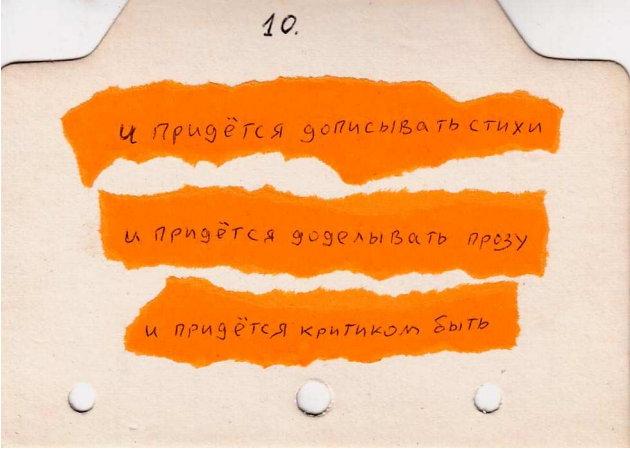 10.
и придётся дописывать стихи
и придётся доделывать прозу
и придётся критиком быть